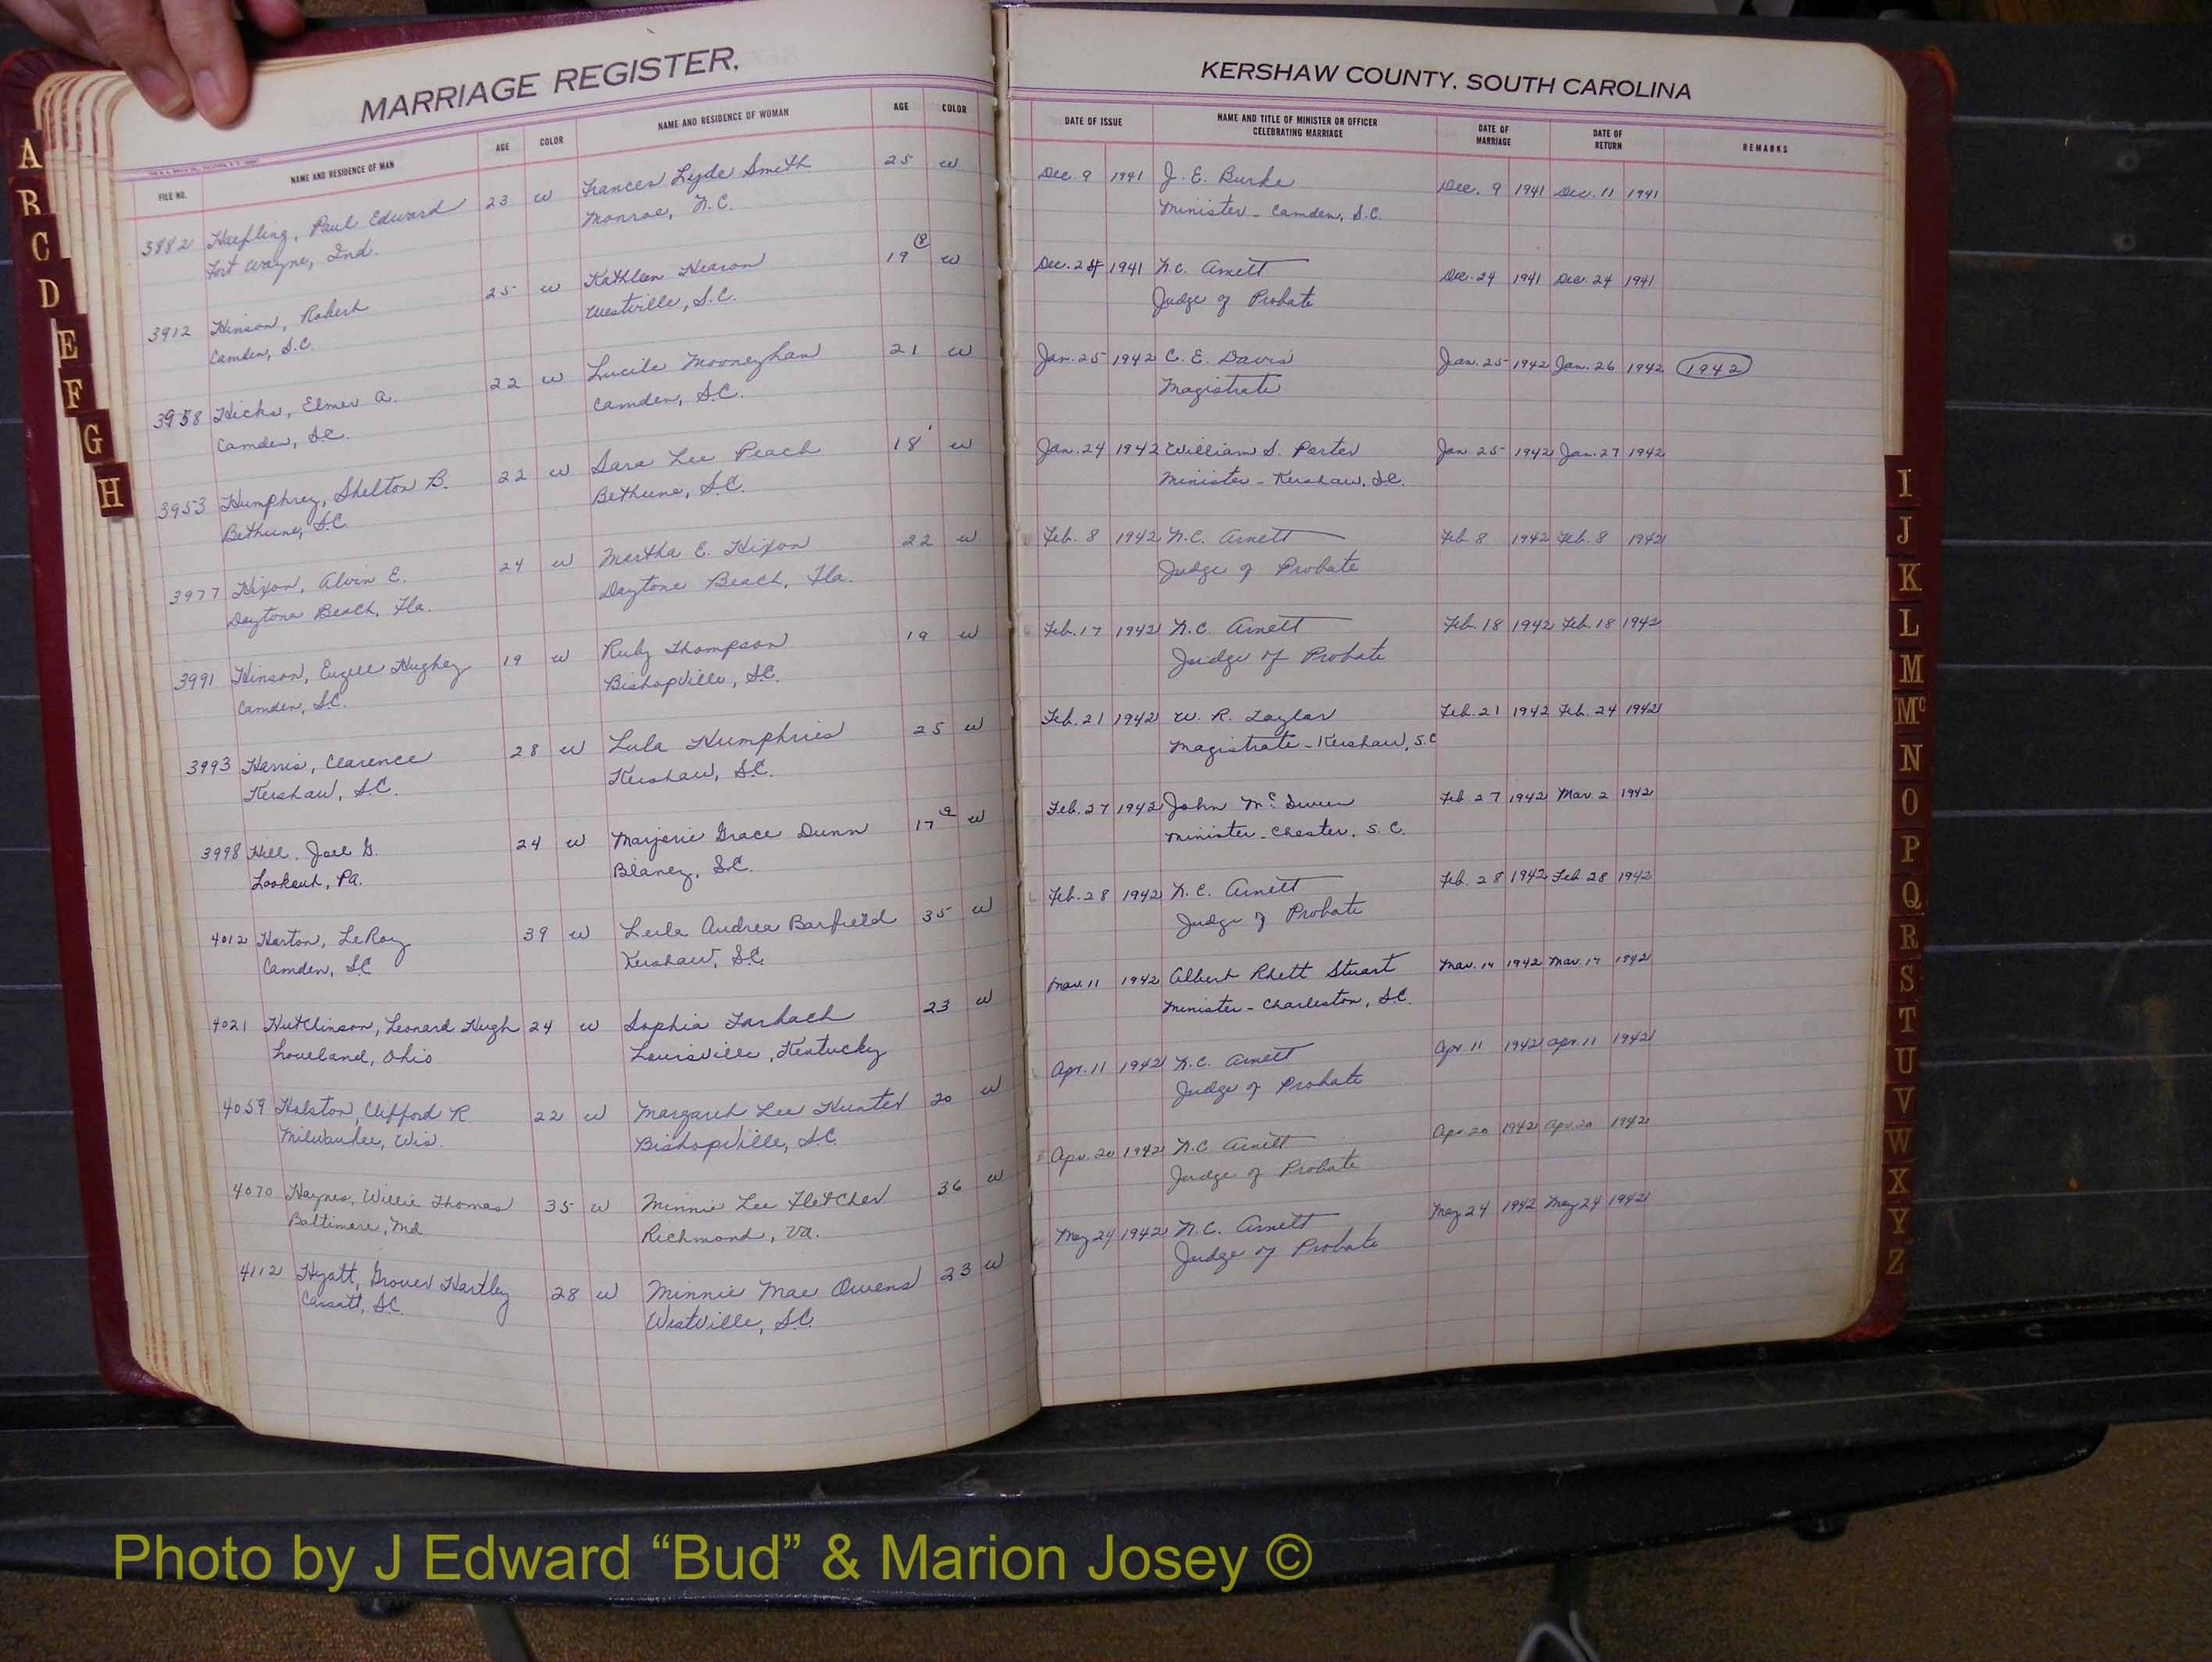 MARRIAGE REGISTER.
FILE NO. NAME AND RESIDENCE OF MAN AGE COLOR NAME AND RESIDENCE OF WOMAN AGE COLOR
3882 Haefling, Paul Edward 23 W Frances Lyde Smith 25 W
Fort Wayne, Ind. Monroe, N.C.
3912 Hinson, Robert 25 W Kathleen Hearon 19 W
Camden, S.C. Westville, S.C.
3958 Hicks, Elmer A. 22 W Lucile Mooneyhan 21 W
Camden, S.C. Camden, S.C.
3953 Humphrey, Shelton B. 22 W Sara Lee Peach 18 W
Bethune, S.C. Bethune, S.C.
3977 Hixon, Alvin E. 24 W Martha E. Hixon 22 W
Daytona Beach, Fla. Daytona Beach, Fla.
3991 Hinson, Hughey 19 W Ruby Thompson 19 W
Camden, S.C. Bishopville, S.C.
3993 Harris, Clarence 28 W Lula Humphries 25 W
Kershaw, S.C. Kershaw, S.C.
3998 Hill, Joel G. 24 W Marjorie Grace Dunn 17 W
Lookout, Pa. Blaney, S.C.
4012 Horton, LeRoy 39 W Leila Audrea Barfield 35 W
Camden, S.C. Kershaw, S.C.
4021 Hutchinson, Leonard Hugh 24 W Sophia 23 W
Loveland, Ohio Louisville, Kentucky
4059 Holston, Clifford R. 22 W Margaret Lee Hunter 20 W
Milwaukee, Wis. Bishopville, S.C.
4070 Haynes, Willie Thomas 35 W Minnie Lee Fletcher 36 W
Baltimore, Md Richmond, Va.
4112 Hyatt, Grover Hartley 28 W Minnie Mae Owens 23 W
Cassatt, S.C. Westville, S.C.
KERSHAW COUNTY, SOUTH CAROLINA
DATE OF ISSUE NAME AND TITLE OF MINISTER OR OFFICER CELEBRATING MARRIAGE DATE OF MARRIAGE DATE OF RETURN REMARKS
Dec. 9 1941 J. E. Burke Dec. 9 1941 Dec. 11 1941
Minister - Camden, S.C.
Dec. 24 1941 N.C. Arnett Dec. 24 1941 Dec. 24 1941
Judge of Probate
Jan. 25 1942 C. E. Davis Jan. 25 1942 Jan. 26 1942 1942
Magistrate
Jan. 24 1942 William S. Porter Jan. 25 1942 Jan. 27 1942
Minister - Kershaw, S.C.
Feb. 8 1942 N.C. Arnett Feb. 8 1942 Feb. 8 1942
Judge of Probate
Feb. 17 1942 N.C. Arnett Feb. 18 1942 Feb. 18 1942
Judge of Probate
Feb. 21 1942 W. R. Taylor Feb. 21 1942 Feb. 24 1942
Magistrate - Kershaw, S.C
Feb. 27 1942 John Feb 27 1942 Mar. 2 1942
Minister - Chester, S.C.
Feb. 28 1942 N.C. Arnett Feb. 28 1942 Feb 28 1942
Judge of Probate
Mar. 11 1942 Albert Rhett Stuart Mar. 14 1942 Mar. 17 1942
Minister - Charleston, S.C.
Apr. 11 1942 N.C. Arnett Apr. 11 1942 Apr. 11 1942
Judge of Probate
Apr. 20 1942 N.C. Arnett Apr. 20 1942 Apr. 20 1942
Judge of Probate
May 24 1942 N.C. Arnett May 24 1942 May 24 1942
Judge of Probate
A
B
C
D
E
F
G
H
I
J
K
L
M
Mc
N
O
P
Q
R
S
T
U
V
W
X
Y
Z
Photo by J Edward “Bud” & Marion Josey ©